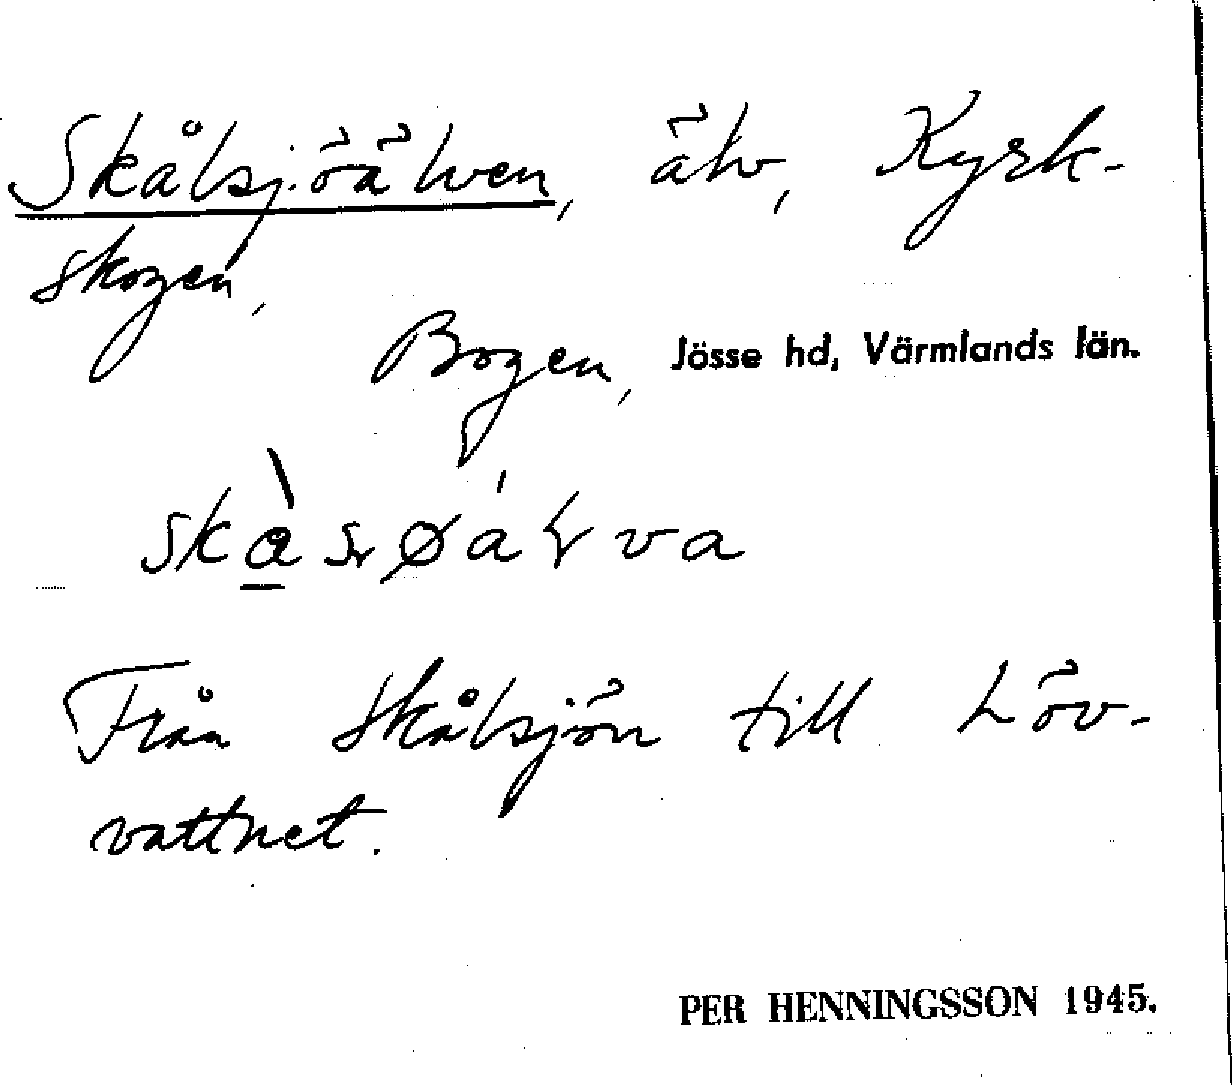 Skålsjöälven, älv, Kyrk-
skogen,
Bogen, Jösse hd, Värmlands län.
Från Skålsjön till Löv-
vattnet.
PER HENNINGSSON 1945.